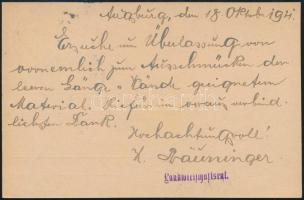 Augsburg, den 18. Oktob. 191
Ersuche um Überlassung von
vornemlich zum Ausschmücken der
leeren Gänge Wände geeignetem
Material. Hiefür voraus verbind
lichsten Dank.
Hochachtungsvoll!
H. Bäuninger
Landwirtschaftsrat.